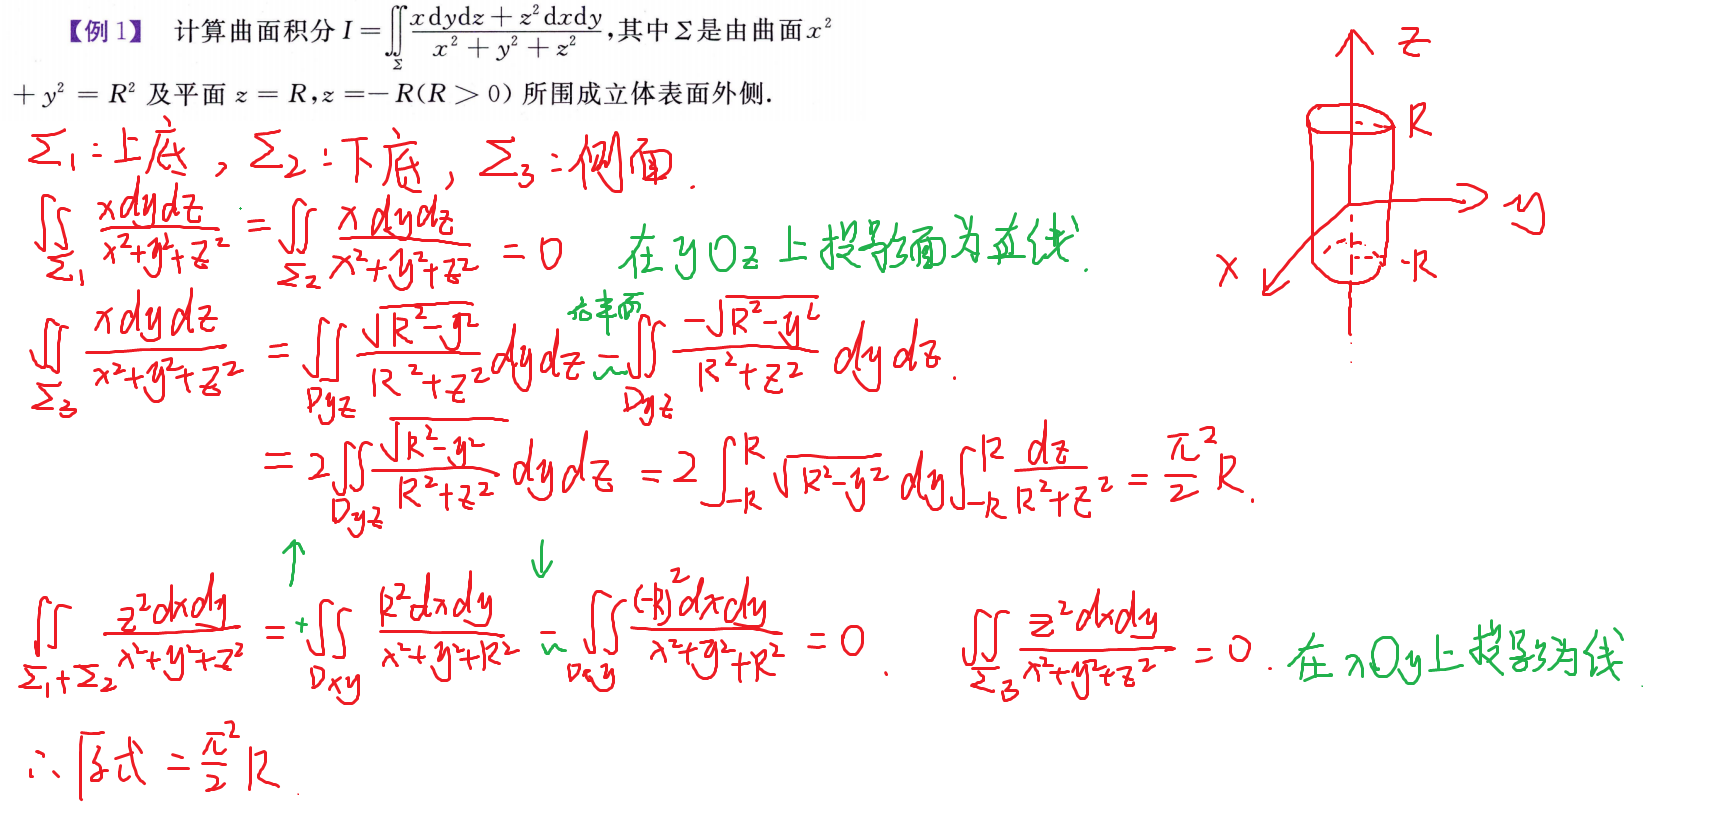 【例1】 计算曲面积分 I = ∬_Σ (x dydz + z² dxdy)/(x² + y² + z²), 其中 Σ 是由曲面 x²
+ y² = R² 及平面 z = R, z = − R(R > 0) 所围成立体表面外侧.
Σ₁:上底, Σ₂:下底, Σ₃:侧面.
∬_Σ₁ xdydz/(x²+y²+z²) = ∬_Σ₂ xdydz/(x²+y²+z²) = 0 在yOz上投影面为直线.
∬_Σ₃ xdydz/(x²+y²+z²) = ∬_Dyz √(R²−y²)/(R²+z²) dydz − ∬_Dyz −√(R²−y²)/(R²+z²) dydz.
后半面
= 2∬_Dyz √(R²−y²)/(R²+z²) dydz = 2∫_{-R}^{R} √(R²−y²) dy ∫_{-R}^{R} dz/(R²+z²) = π²/2 R.
↑ ↓
∬_{Σ₁+Σ₂} z²dxdy/(x²+y²+z²) = +∬_Dxy R²dxdy/(x²+y²+R²) − ∬_Dxy (-R)²dxdy/(x²+y²+R²) = 0. ∬_Σ₃ z²dxdy/(x²+y²+z²) = 0. 在xOy上投影为线
∴原式 = π²/2 R.
z
R
y
x
-R